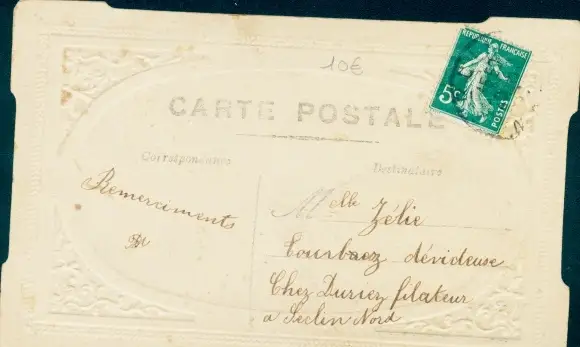 10€
REPUBLIQUE FRANÇAISE
5c
POSTES
CARTE POSTALE
Correspondance
Destinataire
Remerciments
Melle Zélie
dévideuse
Chez Duriez filateur
a Seclin Nord